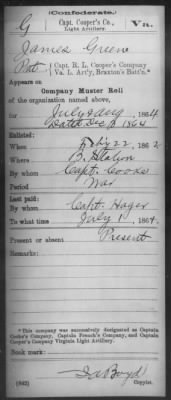 (Confederate.)
G Capt. Cooper's Co., Va.
Light Artillery.
James Green
Pvt., Capt. R. L. Cooper's Company
Va. L. Art'y, Braxton's Batt'n.*
Appears on
Company Muster Roll
of the organization named above,
for July & Aug, 1864
Dated Dec 1864
Enlisted:
When 22, 1862
Where Station
By whom Capt. Cooke
Period War
Last paid:
By whom Capt. Hager
To what time July 1, 1864.
Present or absent Present
Remarks:
*This company was successively designated as Captain
Cooke's Company, Captain French's Company, and Captain
Cooper's Company Virginia Light Artillery.
Book mark:
(642) Boyd
Copyist.